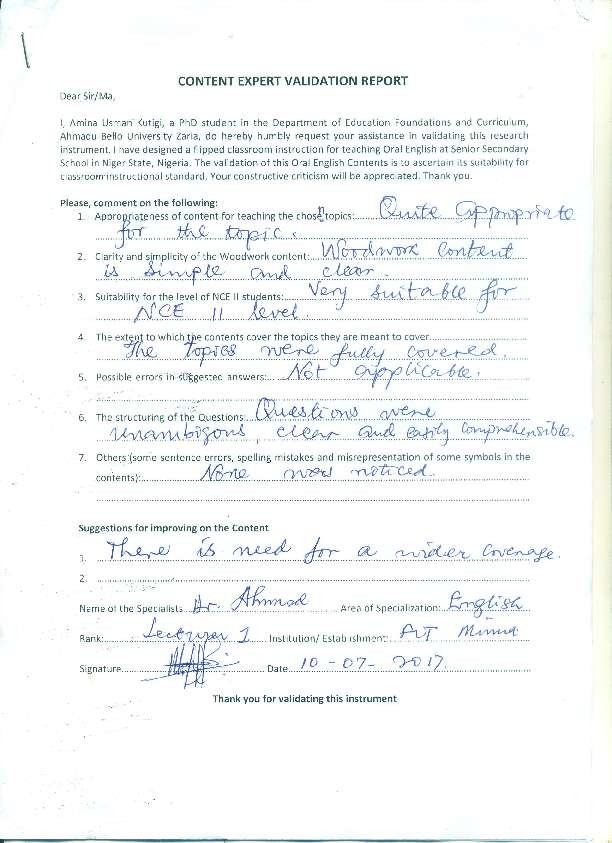 CONTENT EXPERT VALIDATION REPORT
Dear Sir/Ma,
I, Amina Usman Kutigi, a PhD student in the Department of Education Foundations and Curriculum,
Ahmadu Bello University Zaria, do hereby humbly request your assistance in validating this research
instrument. I have designed a flipped classroom instruction for teaching Oral English at Senior Secondary
School in Niger State, Nigeria. The validation of this Oral English Contents is to ascertain its suitability for
classroom instructional standard. Your constructive criticism will be appreciated. Thank you.
Please, comment on the following:
1. Appropriateness of content for teaching the chosen topics: Quite appropriate
for the topic.
2. Clarity and simplicity of the Woodwork content: Woodwork content
is simple and clear.
3. Suitability for the level of NCE II students: Very suitable for
NCE II level.
4. The extent to which the contents cover the topics they are meant to cover
The topics were fully covered.
5. Possible errors in suggested answers: Not applicable.
6. The structuring of the Questions: Questions were
unambigous, clear and easily comprehensible.
7. Others (some sentence errors, spelling mistakes and misrepresentation of some symbols in the
contents): None was noticed.
Suggestions for improving on the Content
1. There is need for a wider coverage.
2.
Name of the Specialists Dr. Ahmad Area of Specialization: English
Rank: Lecturer I Institution/ Establishment: FUT Minna
Signature Date 10-07-2017
Thank you for validating this instrument